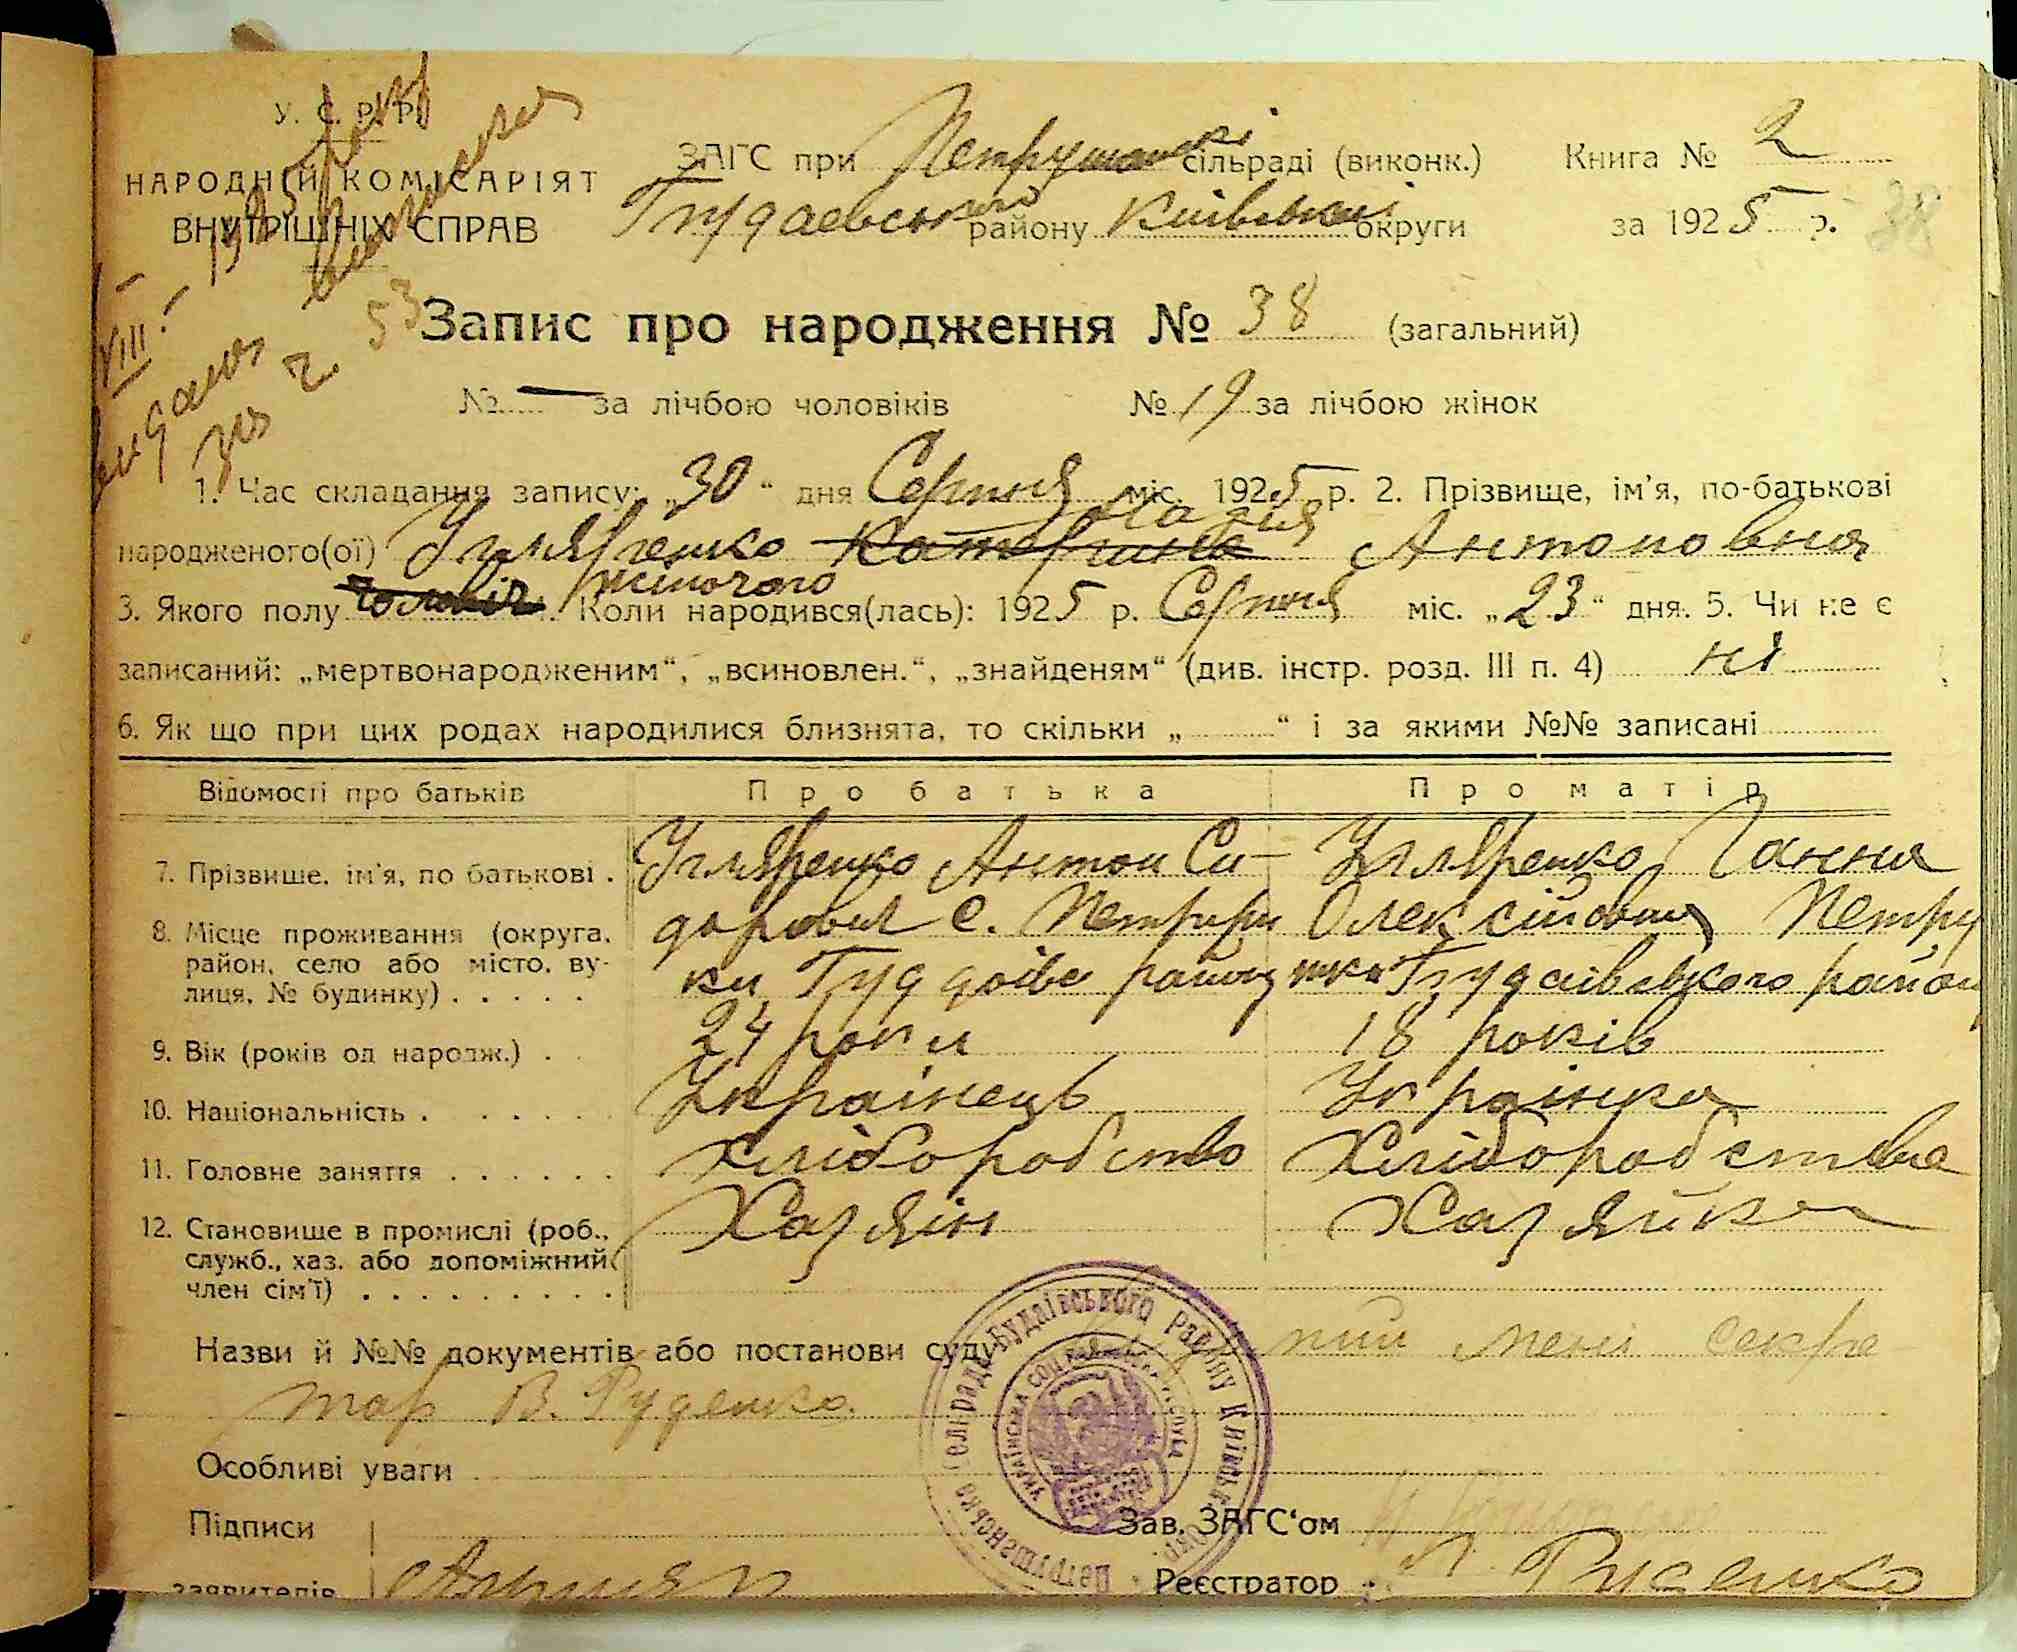 У. С. Р. Р.
НАРОДНІЙ КОМІСАРІЯТ
ВНУТРІШНІХ СПРАВ
VIII 1925 року
видано виписка
за ч. 53
ЗАГС при Петрушанскі сільраді (виконк.) Книга № 2
району Київської округи за 1925 р. 38
Запис про народження № 38 (загальний)
№ — за лічбою чоловіків № 19 за лічбою жінок
1. Час складання запису: „30“ дня Серпня міс. 1925 р. 2. Прізвище, ім'я, по-батькові
народженого(ої) Катерина Антоновна
3. Якого полу чоловіч жіночого Коли народився(лась): 1925 р. Серпня міс. „23“ дня. 5. Чи не є
записаний: „мертвонародженим“, „всиновлен.“, „знайденям“ (див. інстр. розд. III п. 4) ні
6. Як що при цих родах народилися близнята, то скільки „ “ і за якими №№ записані
Відомості про батьків Про батька Про матір
7. Прізвище, ім'я, по батькові . Антон Си- Ганна
8. Місце проживання (округа, дорович с. Петруш Олексійовна Петру
район, село або місто, ву- ки району шки Будаївського району
лиця, № будинку) . . . . .
9. Вік (років од народж.) . . 24 роки 18 років
10. Національність . . . . . . Українець Українка
11. Головне заняття . . . . . . Хліборобство Хліборобство
12. Становище в промислі (роб., Хазяїн Хазяйка
служб., хаз. або допоміжний
член сім'ї) . . . . . . . . .
Назви й №№ документів або постанови суду мені секре
тар В. Руденко
Особливі уваги
Підписи Зав. ЗАГС'ом
заявителів Реєстратор Руденко
Петрушанська сельрада Будаївського району Київськ. окр.
УКРАЇНСЬКА СОЦ. РАД.